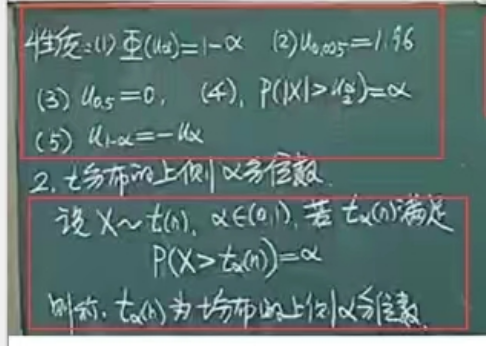 性质:(1) Φ(uα)=1-α (2) u0.025=1.96
(3) u0.5=0, (4), P(|X|>uα/2)=α
(5) u1-α=-uα
2. t分布的上侧α分位数
设 X~t(n), α∈(0,1), 若 tα(n)满足
P(X>tα(n))=α
则称, tα(n)为t分布的上侧α分位数